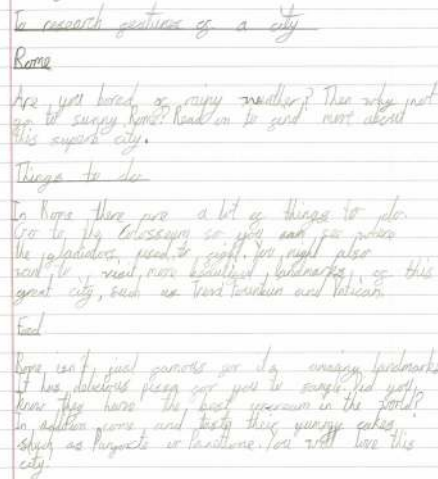 To research features of a city
Rome
Are you bored of rainy weather? Then why not
go to sunny Rome? Read on to find more about
this superb city.
Things to do
In Rome there are a lot of things to do.
Go to the Colosseum so you can see where
the gladiators used to fight. You might also
want to visit more beautiful landmarks of this
great city, such as Trevi Fountain and Vatican.
Food
Rome isn't just famous for its amazing landmarks
It has delicious pizza for you to sample. Did you
know they have the best icecream in the world?
In addition come and taste their yummy cakes,
such as or Panettone. You will love this
city.